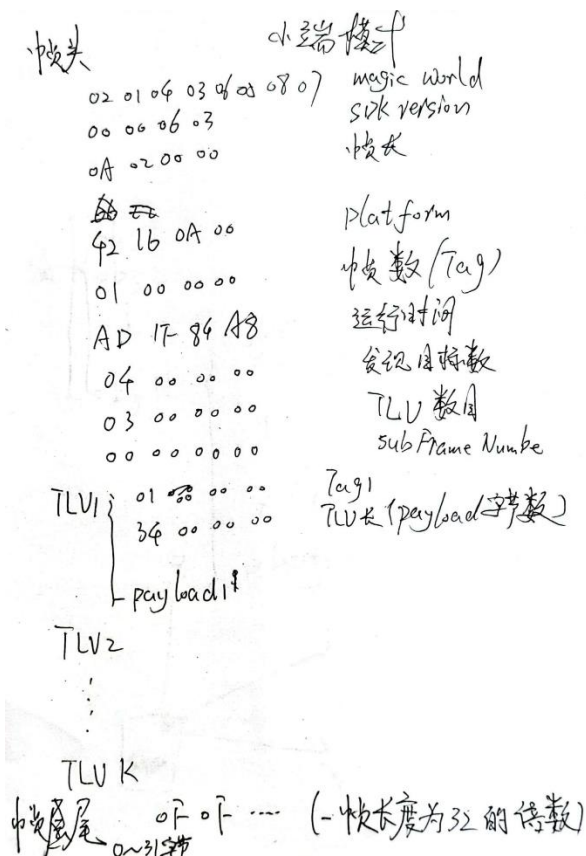 帧头 小端模式
02 01 04 03 06 05 08 07 magic world
00 00 06 03 SDK version
0A 02 00 00 帧长
42 16 0A 00 platform
01 00 00 00 帧数(Tag)
AD 1F 84 A8 运行时间
04 00 00 00 发现目标数
03 00 00 00 TLV数目
00 00 00 00 00 subFrame Numbe
TLV1: 01 00 00 00 Tag1
34 00 00 00 TLV长(payload字节数)
payload1
TLV2
TLV K
帧尾 0F 0F ···· (一帧长度为32的倍数)
0~31字节